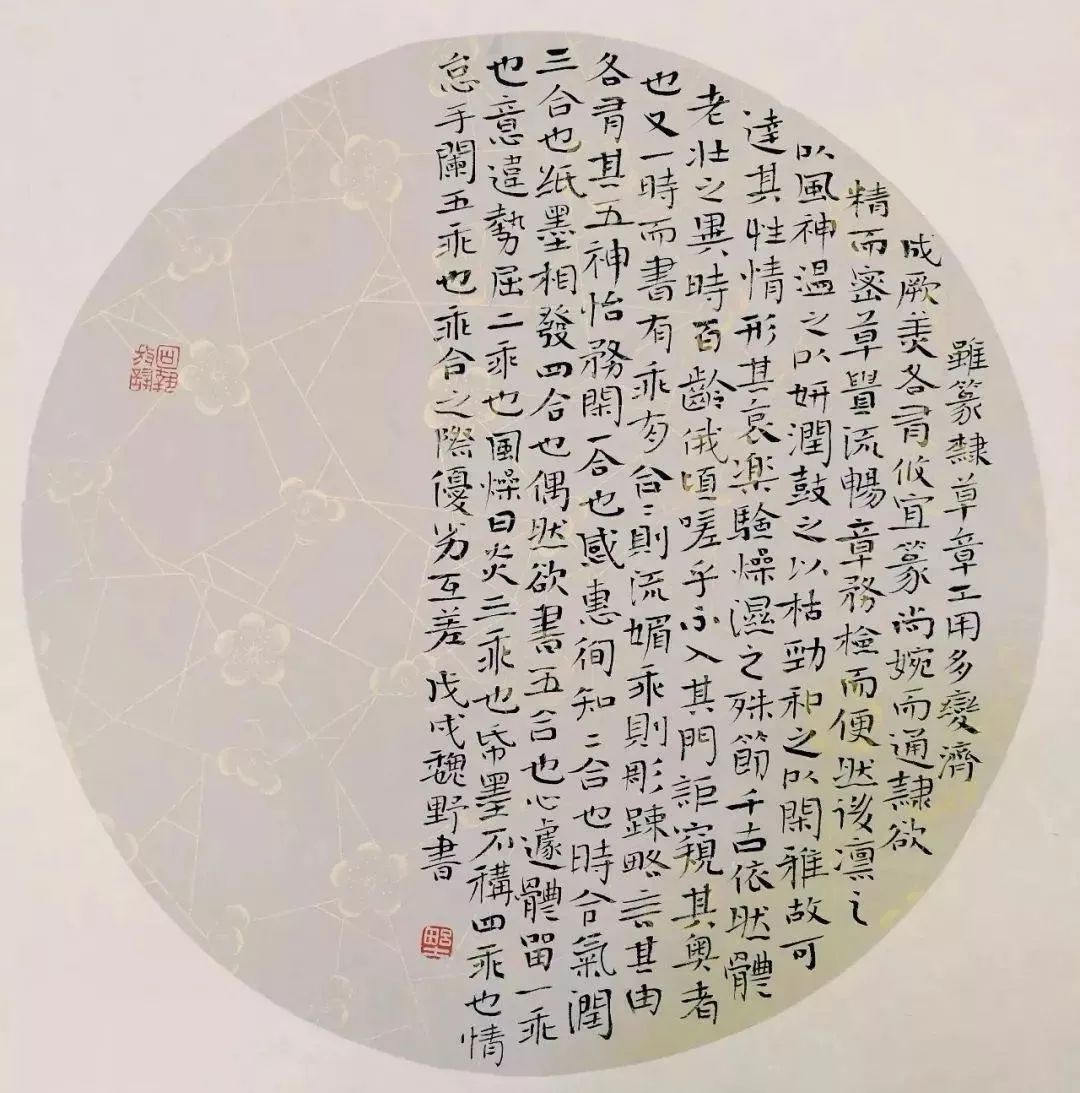 雖篆隸草章工用多變濟
成厥美各有攸宜篆尚婉而通隸欲
精而密草貴流暢章務檢而便然後凛之
以風神温之以妍潤鼓之以枯勁和之以閑雅故可
達其性情形其哀樂驗燥濕之殊節千古依然體
老壯之異時百齡俄頃嗟乎不入其門詎窺其奥者
也又一時而書有乖有合:則流媚乖則彫疎略言其由
各有其五神怡務閑一合也感惠徇知二合也時合氣潤
三合也紙墨相發四合也偶然欲書五合也心遽體留一乖
也意違勢屈二乖也風燥日炎三乖也帋墨不稱四乖也情
怠手闌五乖也乖合之際優劣互差 戊戌魏野書
野